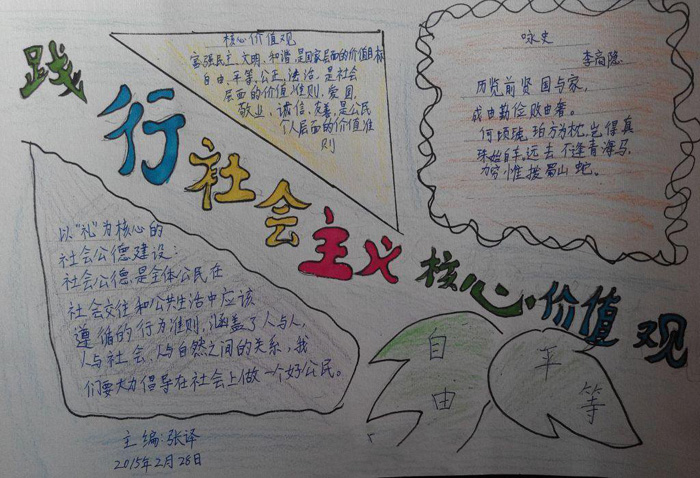 践行社会主义核心价值观
核心价值观
富强民主,文明,和谐,是国家层面的价值目标
自由,平等,公正,法治,是社会
层面的价值准则,爱国,
敬业,诚信,友善,是公民
个人层面的价值准
则
咏史
李商隐
历览前贤国与家,
成由勤俭败由奢。
何须琥珀方为枕,岂得真
珠始
车,远去不逢青海马,
力穷惟拔蜀山蛇。
以“礼”为核心的
社会公德建设:
社会公德是全体公民在
社会交往和公共生活中应该
遵循的行为准则,涵盖了人与人,
人与社会,人与自然之间的关系,我
们要大力倡导在社会上做一个好公民。
自由
平等
主编:张译
2015年2月28日